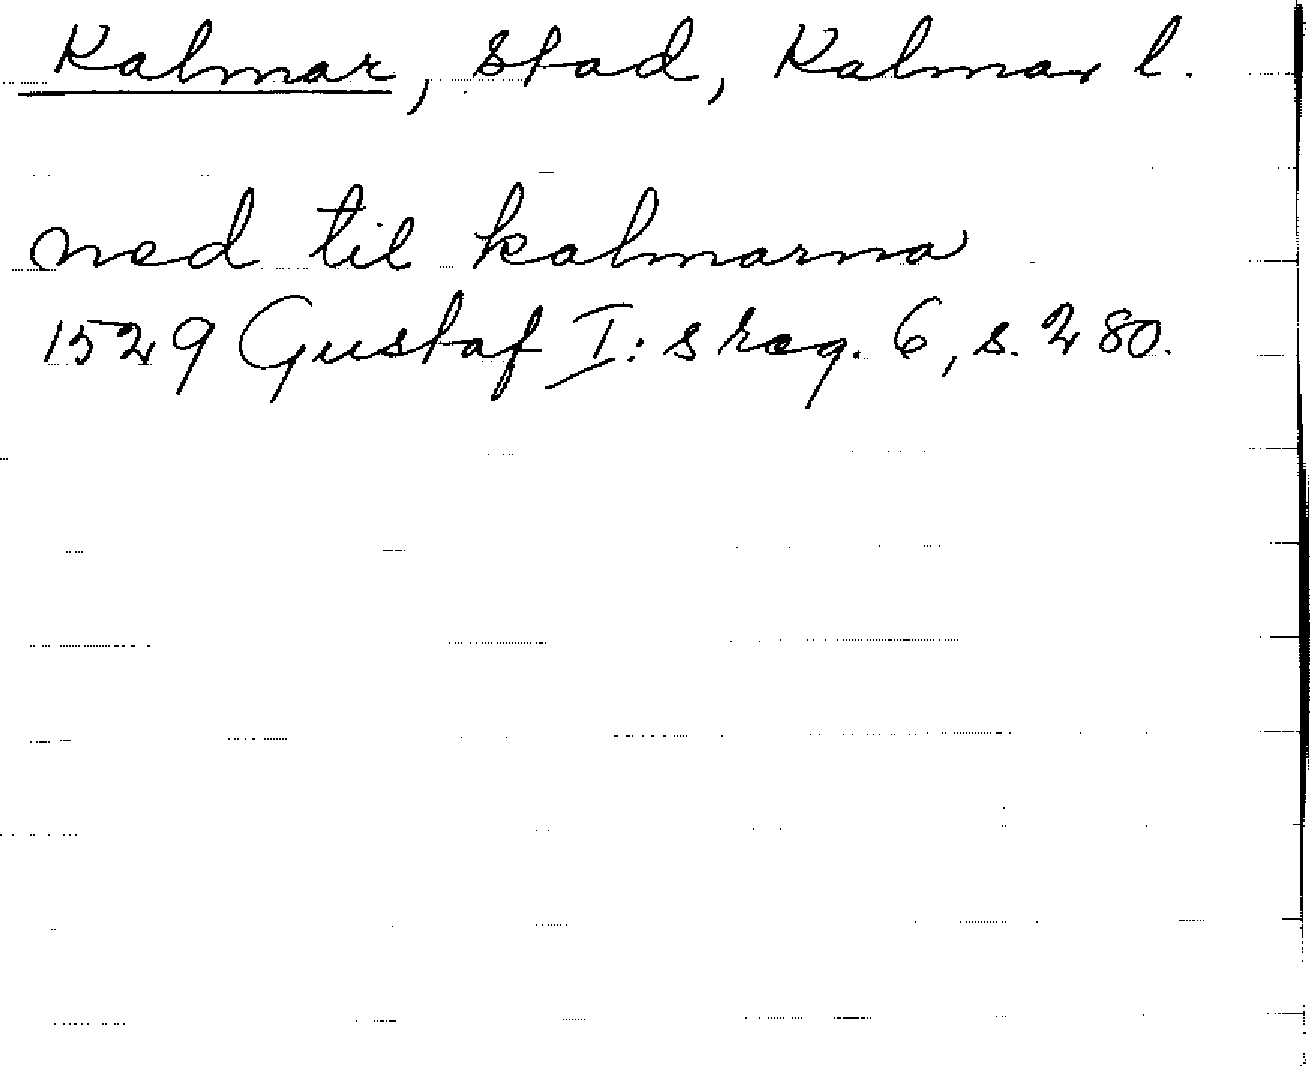 Kalmar, Stad, Kalmar l.
ned til kalmarna
1529 Gustaf I:s reg. 6, s. 280.